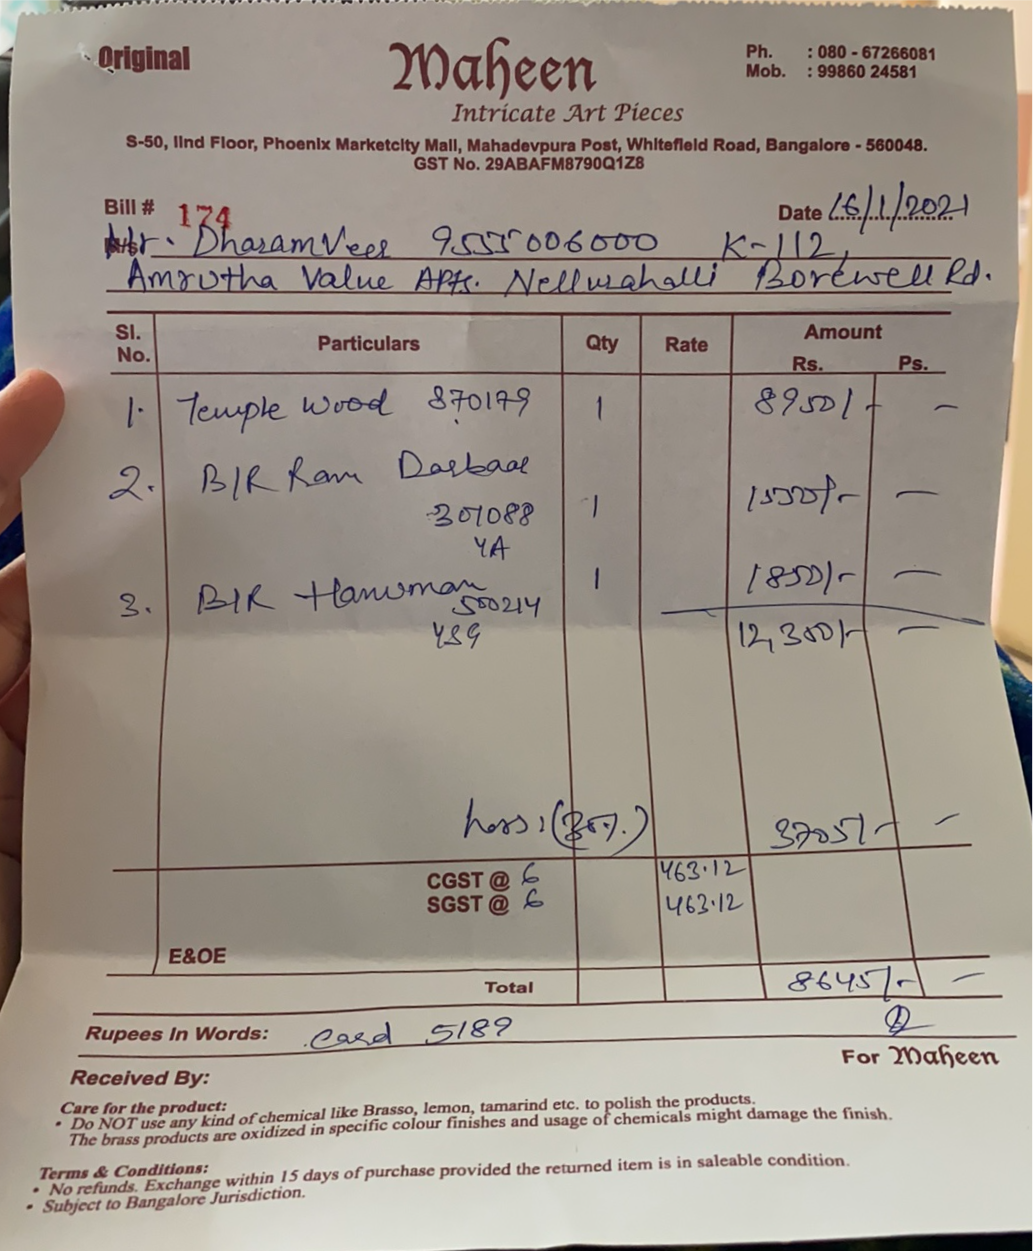 Original
Maheen
Ph. : 080 - 67266081
Mob. : 99860 24581
Intricate Art Pieces
S-50, IInd Floor, Phoenix Marketcity Mall, Mahadevpura Post, Whitefield Road, Bangalore - 560048.
GST No. 29ABAFM8790Q1Z8
Bill # 174 Date 16/1/2021
Mr. DharamVeer 9555006000 K-112,
Amrutha Value Apts. Nellurahalli Borewell Rd.
Sl. No. Particulars Qty Rate Amount
Rs. Ps.
1. Temple Wood 870179 1 8950/- -
2. B/R Ram Darbaar
301088 1 1550/- -
YA
3. B/R Hanuman 1 1850/- -
500214
YSG 12,350/- -
Less: (30%.) 3705/- -
CGST @ 6 463.12
SGST @ 6 463.12
E&OE
Total 8645/- -
Rupees In Words: Card 5189
For Maheen
Received By:
Care for the product:
• Do NOT use any kind of chemical like Brasso, lemon, tamarind etc. to polish the products.
The brass products are oxidized in specific colour finishes and usage of chemicals might damage the finish.
Terms & Conditions:
• No refunds. Exchange within 15 days of purchase provided the returned item is in saleable condition.
• Subject to Bangalore Jurisdiction.